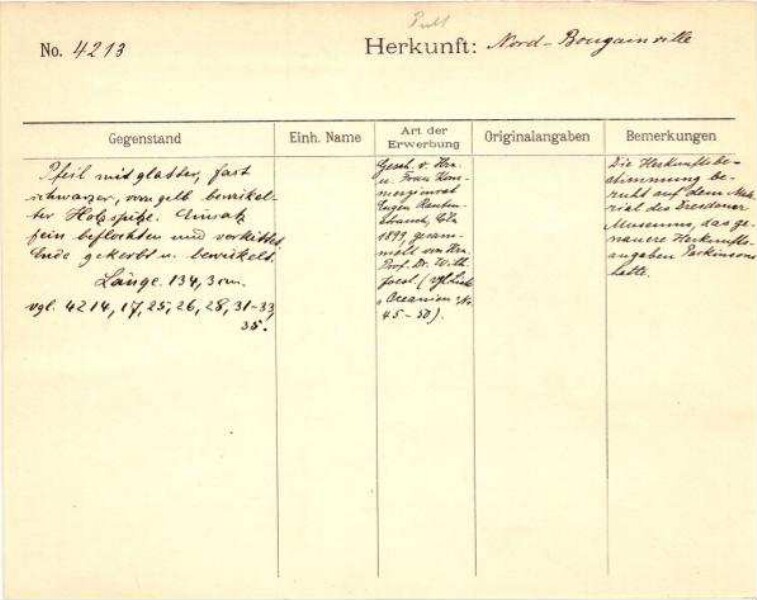 No. 4213
Herkunft: Nord-Bougainville
Gegenstand
Einh. Name
Art der Erwerbung
Originalangaben
Bemerkungen
Pfeil mit glatter, fast
schwarzer, vorn gelb bewickel-
ter Holzspitze. Einsatz
fein beflochten und verkittet
Ende gekerbt u. bewickelt.
Länge. 134,3 cm.
vgl. 4214, 17, 25, 26, 28, 31-33,
35.
Gesch. v. Hrn.
u. Frau Kom-
merzienrat
Eugen Rauten-
strauch, Cöln
1899, gesam-
melt von Hrn.
Prof. Dr. Wilh.
Joest. (vgl. Liste
Oceanien No
45-50).
Die Herkunftsbe-
stimmung be-
ruht auf dem Mate-
rial des Dresdener
Museums, das ge-
nauere Herkunfts-
angaben Parkinsons
hatte.